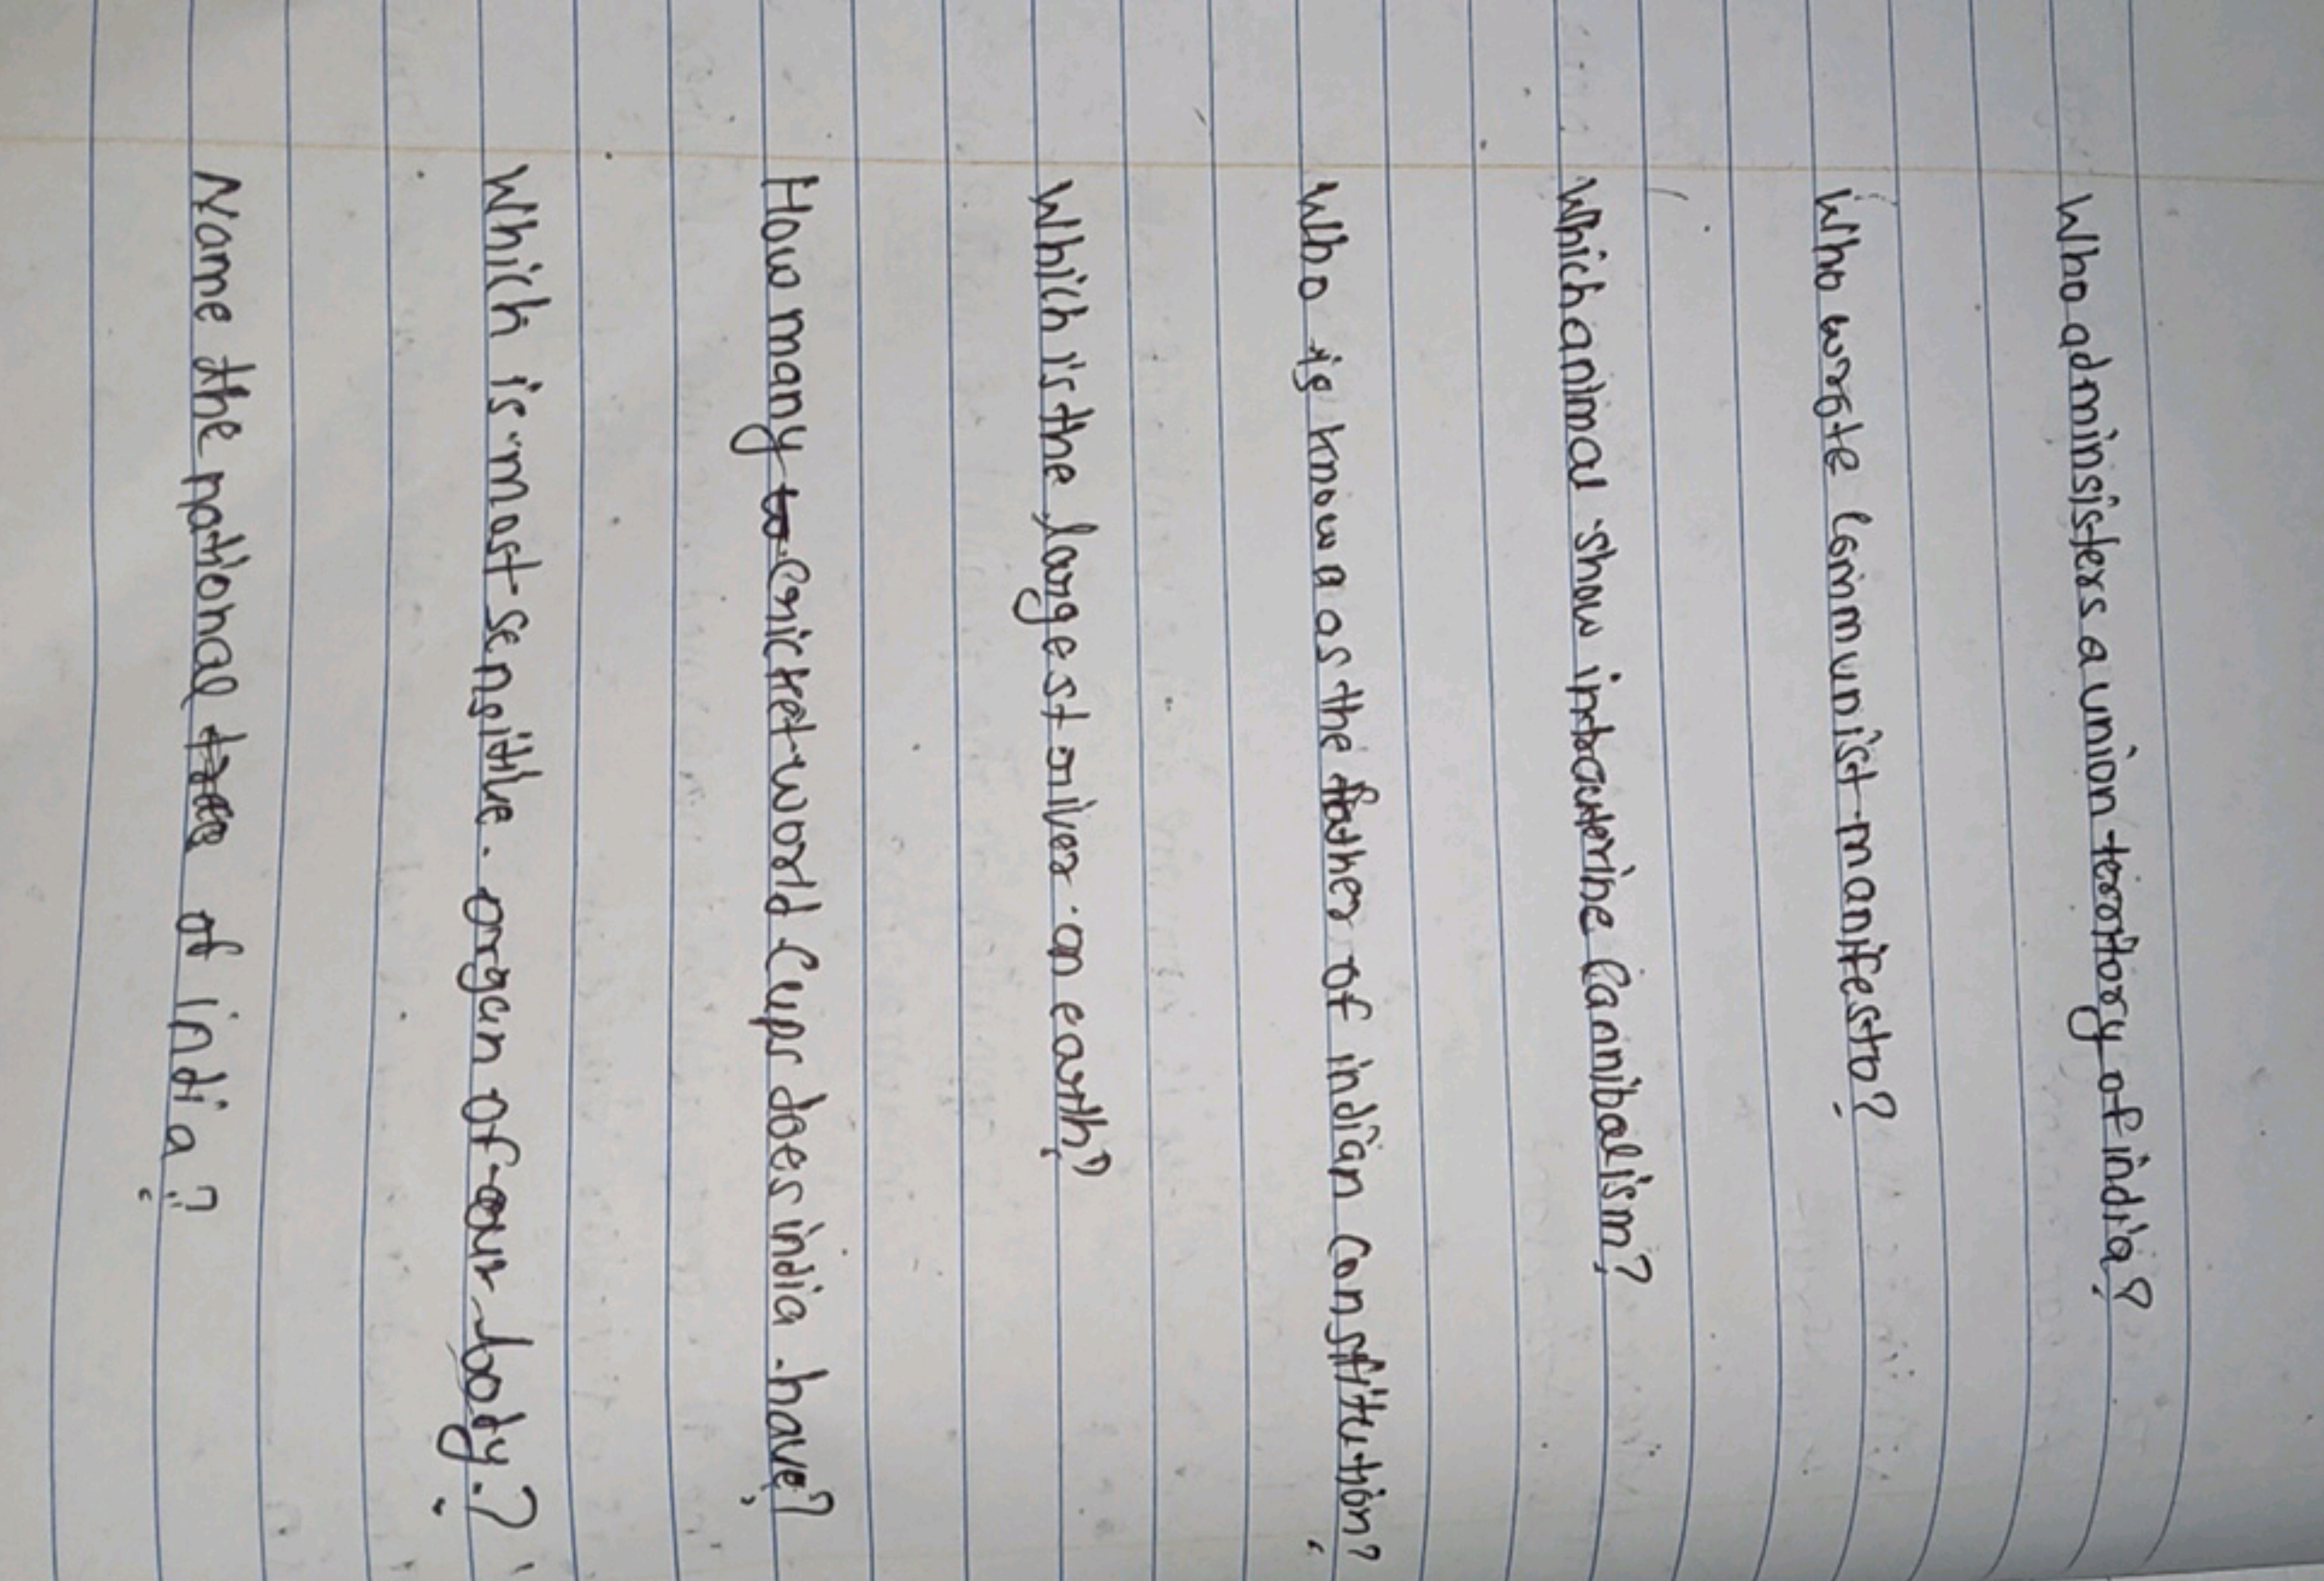 Who adminsisters a union territory of india?
Who wrote Communist manifesto?
Which animal show intrauterine Cannibalism?
Who is known as the father of indian constitution?
Which is the largest river on earth?
How many cricket world Cups does india have?
Which is most sensitive organ of our body?
Name the national tree of india?